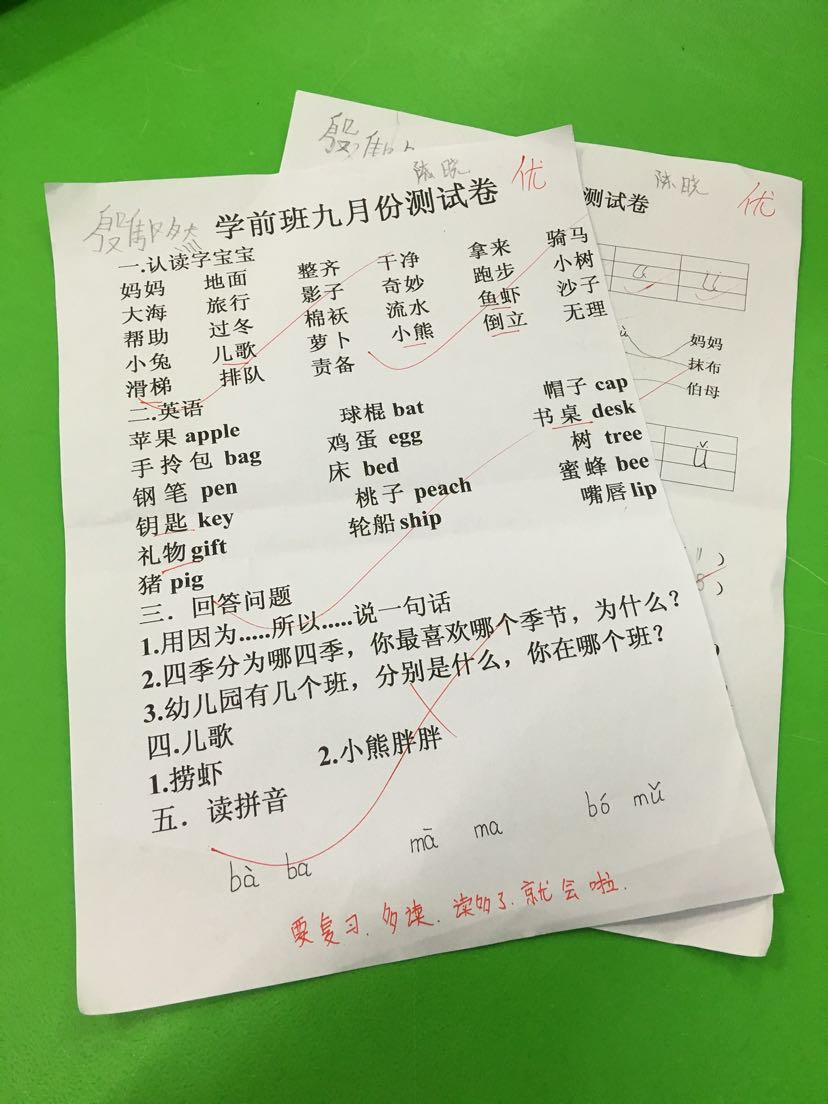 陈晓 优
学前班九月份测试卷
一.认读字宝宝
妈妈 地面 整齐 干净 拿来 骑马
大海 旅行 影子 奇妙 跑步 小树
帮助 过冬 棉袄 流水 鱼虾 沙子
小兔 儿歌 萝卜 小熊 倒立 无理
滑梯 排队 责备
二.英语
苹果 apple 球棍 bat 帽子 cap
手拎包 bag 鸡蛋 egg 书桌 desk
钢笔 pen 床 bed 树 tree
钥匙 key 桃子 peach 蜜蜂 bee
礼物 gift 轮船 ship 嘴唇 lip
猪 pig
三.回答问题
1.用因为.....所以.....说一句话
2.四季分为哪四季，你最喜欢哪个季节，为什么？
3.幼儿园有几个班，分别是什么，你在哪个班？
四.儿歌
1.捞虾 2.小熊胖胖
五.读拼音
bà ba mā ma bó mǔ
要复习.多读.读多了.就会啦.
陈晓 优
测试卷
妈妈
抹布
伯母
ǚ